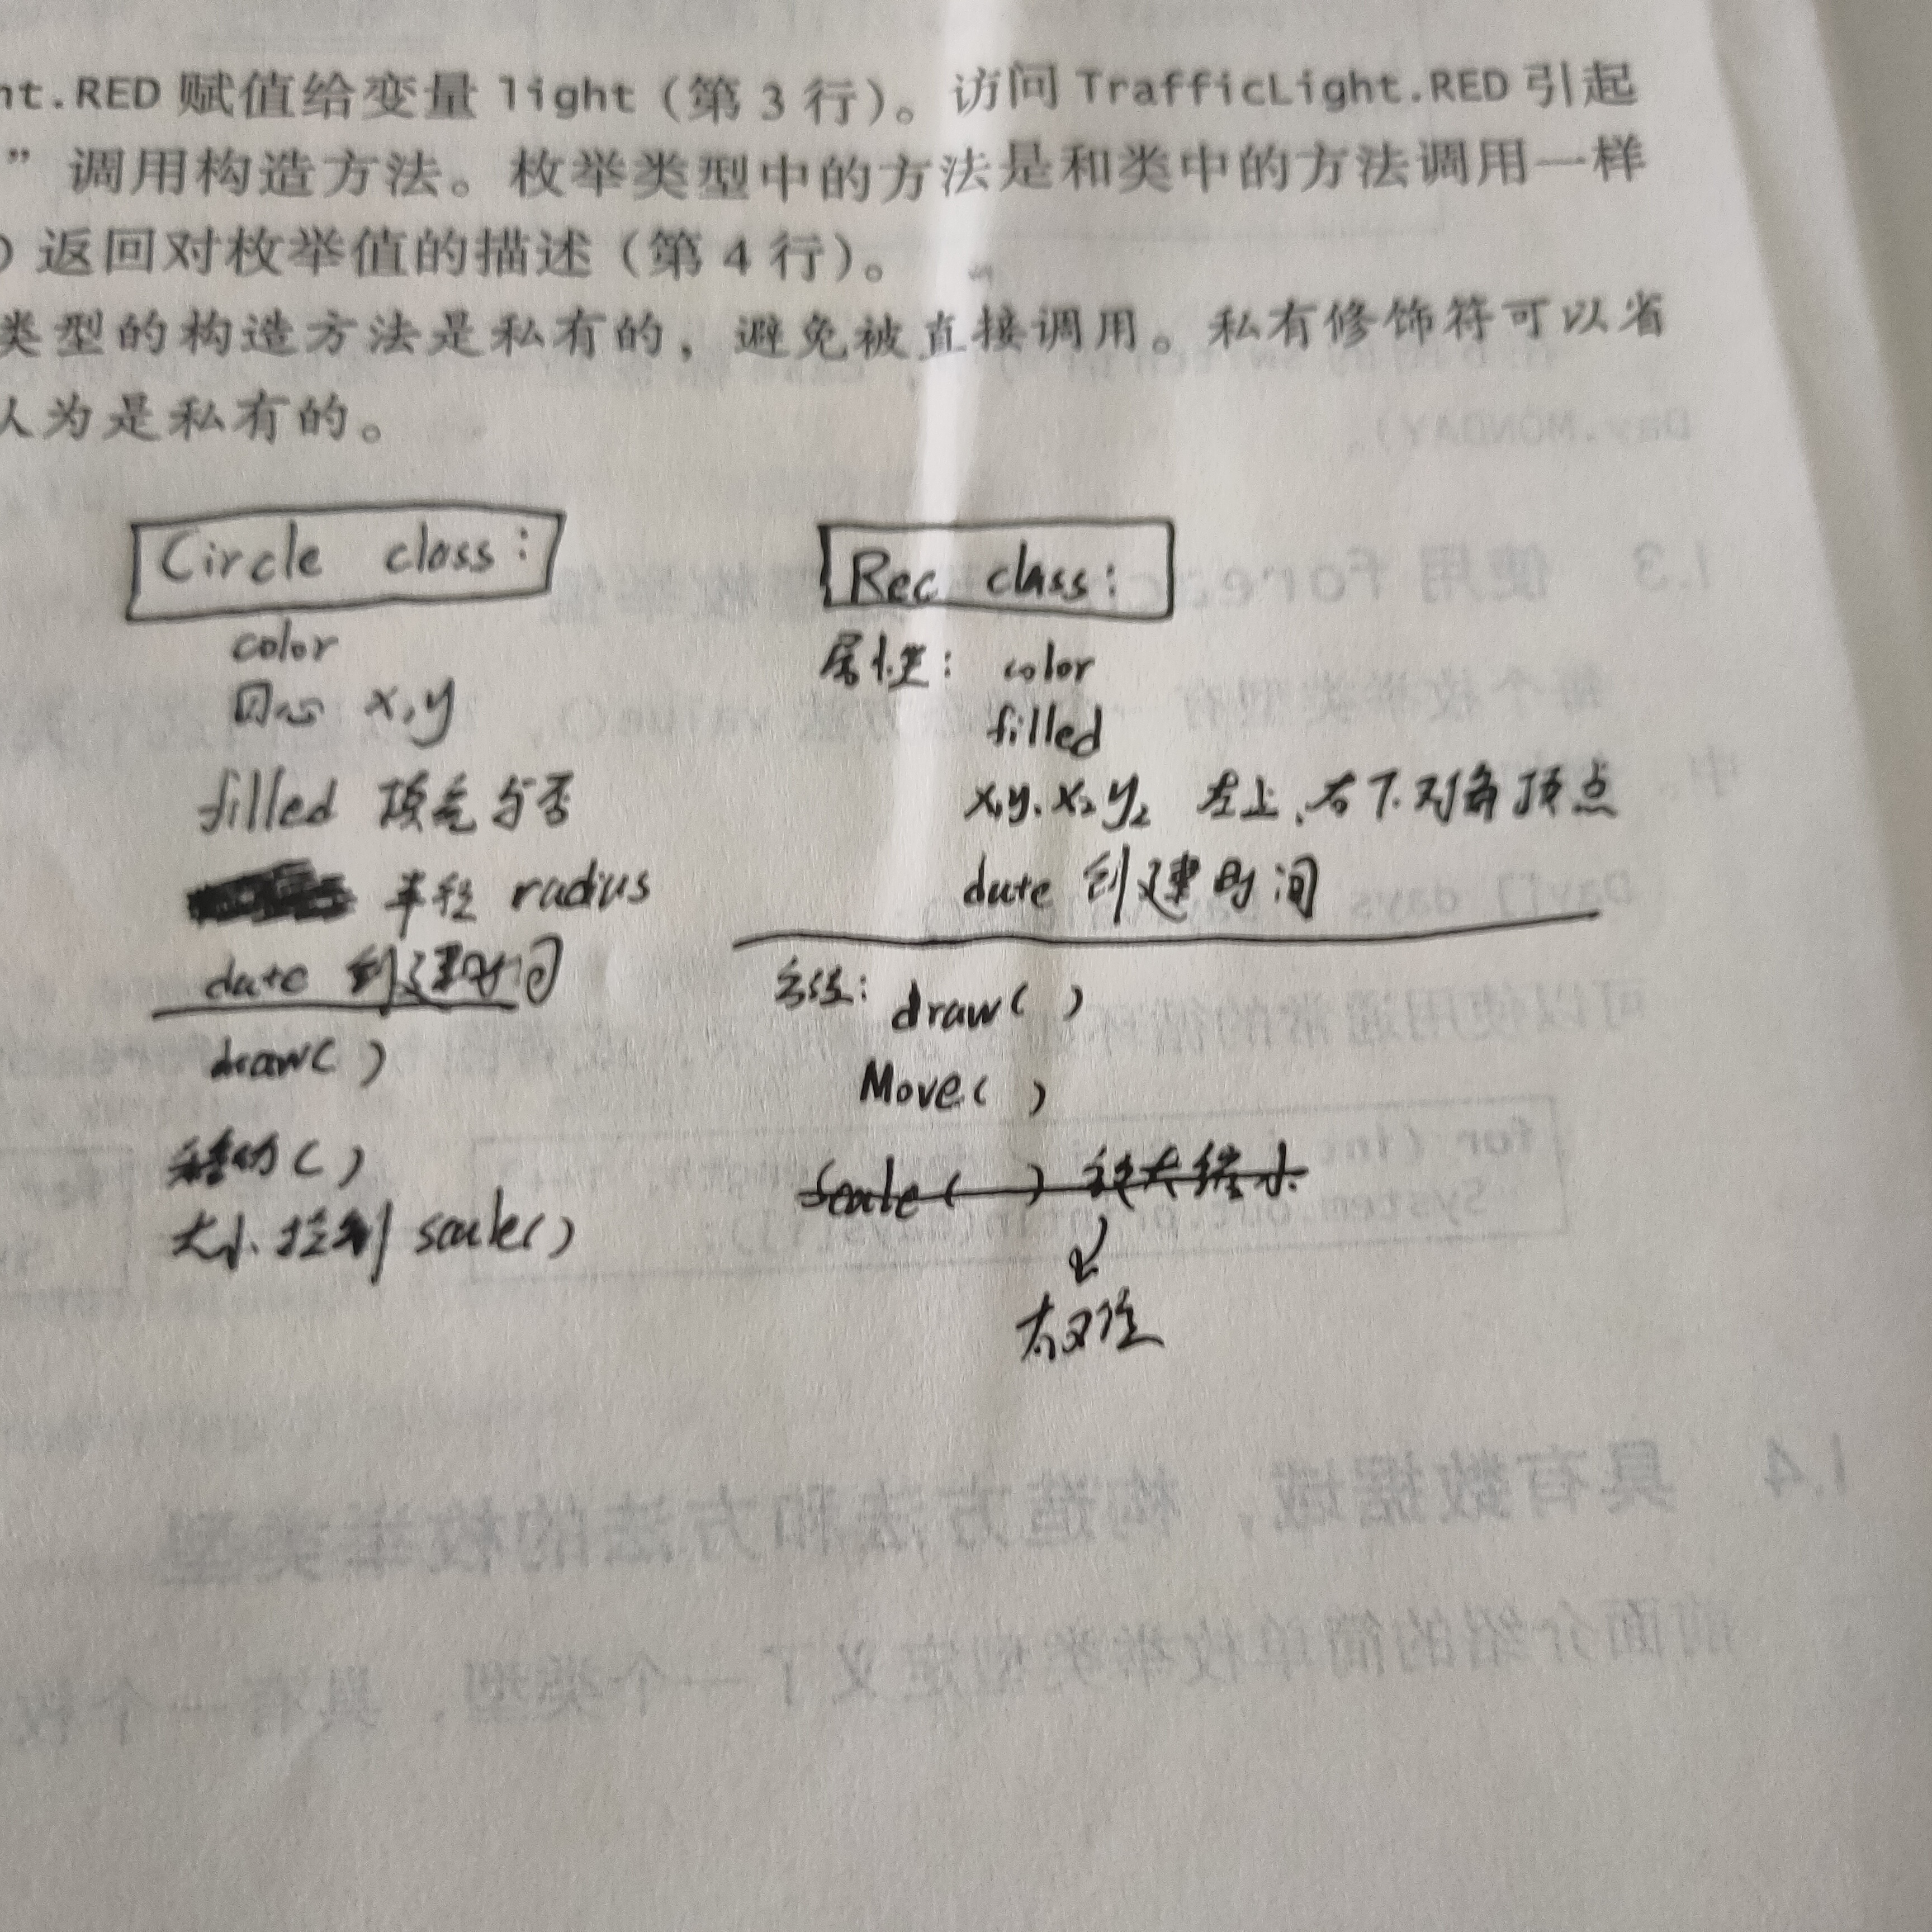 ht.RED 赋值给变量 light (第 3 行)。访问 TrafficLight.RED 引起
” 调用构造方法。枚举类型中的方法是和类中的方法调用一样
) 返回对枚举值的描述 (第 4 行)。
类型的构造方法是私有的，避免被直接调用。私有修饰符可以省
认为是私有的。
Circle class:
color
圆心 x,y
filled 填充与否
半径 radius
date 创建时间
draw( )
移动( )
大小控制 scale()
Rec class:
属性: color
filled
x,y, x₂y₂ 左上、右下对角顶点
date 创建时间
方法: draw( )
Move( )
Scale( ) 放大缩小
Day.MONDAY)。
1.3 使用 foreac
每个枚举类型有
Day[] days
可以使用通常的循环
for (int
System.out.println(days[i]);
1.4 具有数据域，构造方法和方法的枚举类型
前面介绍的简单枚举类型定义了一个类型，具有一个枚